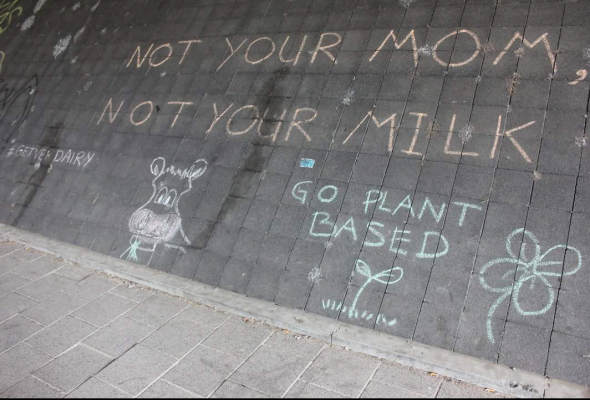 NOT YOUR MOM,
NOT YOUR MILK
#GETVERDAIRY
GO PLANT
BASED